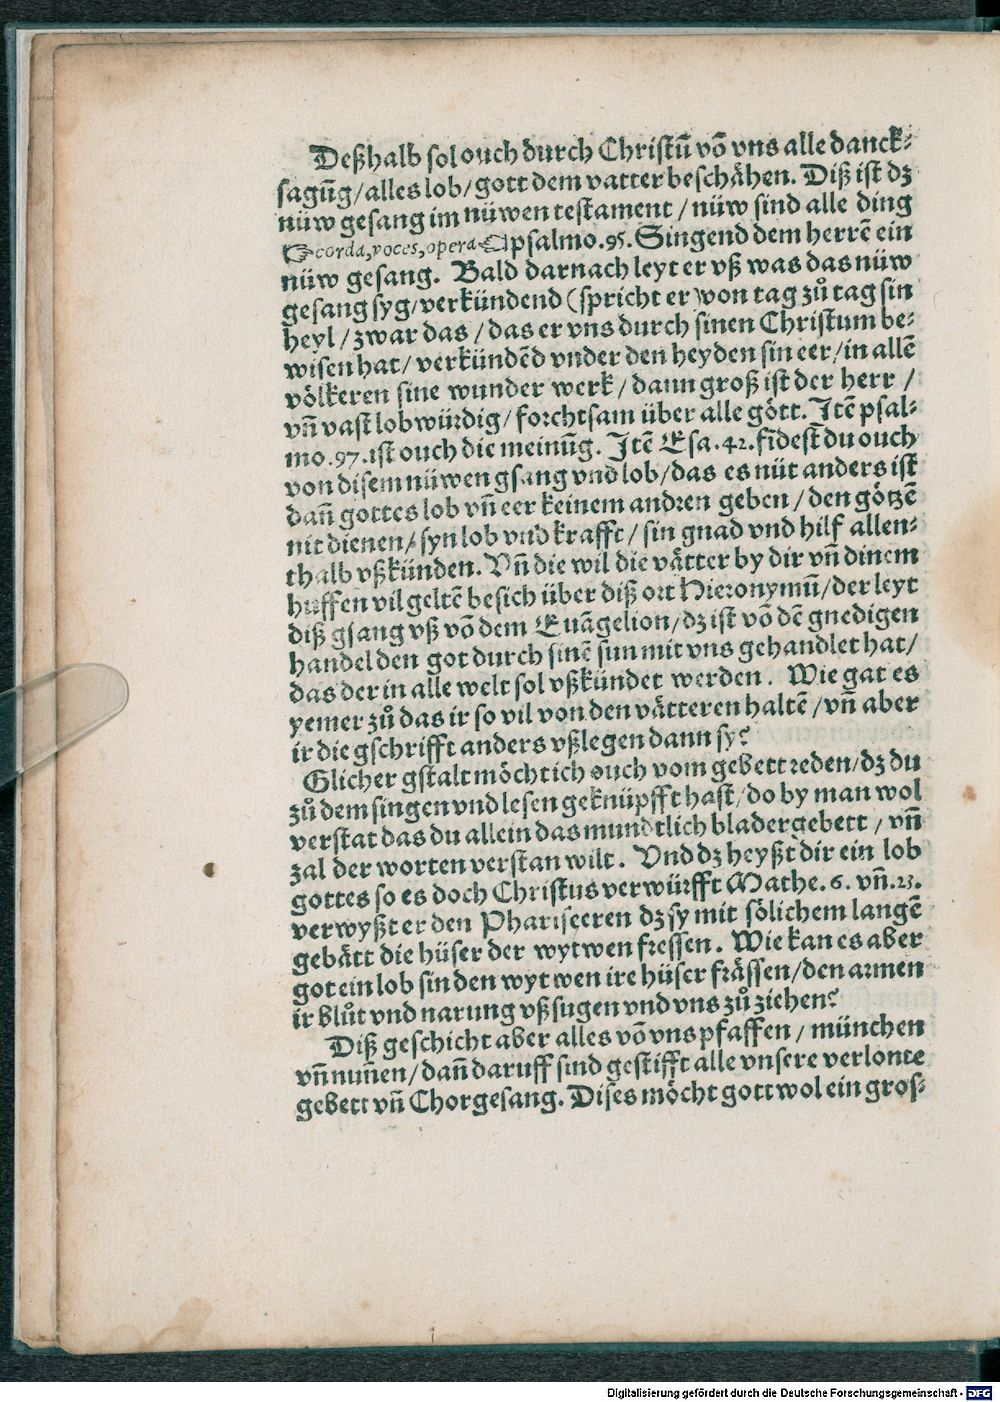 Deßhalb sol ouch durch Christū vō vns alle danck⸗
sagūg/alles lob/gott dem vatter beschåhen. Diß ist dz
nüw gesang im nüwen testament / nüw sind alle ding
corda, voces, opera psalmo.95. Singend dem herrē ein
nüw gesang. Bald darnach leyt er vß was das nüw
gesang syg/verkündend (spricht er) von tag zů tag sin
heyl / zwar das / das er vns durch sinen Christum be⸗
wisen hat/ verkündēd vnder den heyden sin eer/in allē
völkeren sine wunder werk / dann groß ist der herr /
vn̄ vast lobwürdig/ forchtsam über alle gött. Itē psal⸗
mo.97.ist ouch die meinūg. Itē Esa.42.fīdest du ouch
von disem nüwen gsang vnd lob/das es nüt anders ist
dan̄ gottes lob vn̄ eer keinem andren geben / den götzē
nit dienen/ syn lob vnd krafft / sin gnad vnd hilf allen⸗
thalb vßkünden. Vn̄ die wil die våtter by dir vn̄ dinem
huffen vil geltē besich über diß ort Hieronymū/der leyt
diß gsang vß vō dem Euāgelion/dz ist vō dē gnedigen
handel den got durch sinē sun mit vns gehandlet hat/
das der in alle welt sol vßkündet werden. Wie gat es
yemer zů das ir so vil von den våtteren haltē /vn̄ aber
ir die gschrifft anders vßlegen dann sy?
Glicher gstalt möcht ich ouch vom gebett reden/dz du
zů dem singen vnd lesen geknüpfft hast/do by man wol
verstat das du allein das mundtlich bladergebett / vn̄
zal der worten verstan wilt. Vnd dz heyßt dir ein lob
gottes so es doch Christus verwürfft Mathe.6. vn̄.23.
verwyßt er den Phariseeren dz sy mit sölichem langē
gebått die hüser der wytwen fressen. Wie kan es aber
got ein lob sin den wytwen ire hüser fråssen/den armen
ir blůt vnd narung vßsugen vnd vns zů ziehen?
Diß geschicht aber alles vō vns pfaffen / münchen
vn̄ nun̄en/dan̄ daruff sind gestifft alle vnsere verlonte
gebett vn̄ Chorgesang. Dises möcht gott wol ein gros⸗
Digitalisierung gefördert durch die Deutsche Forschungsgemeinschaft - DFG